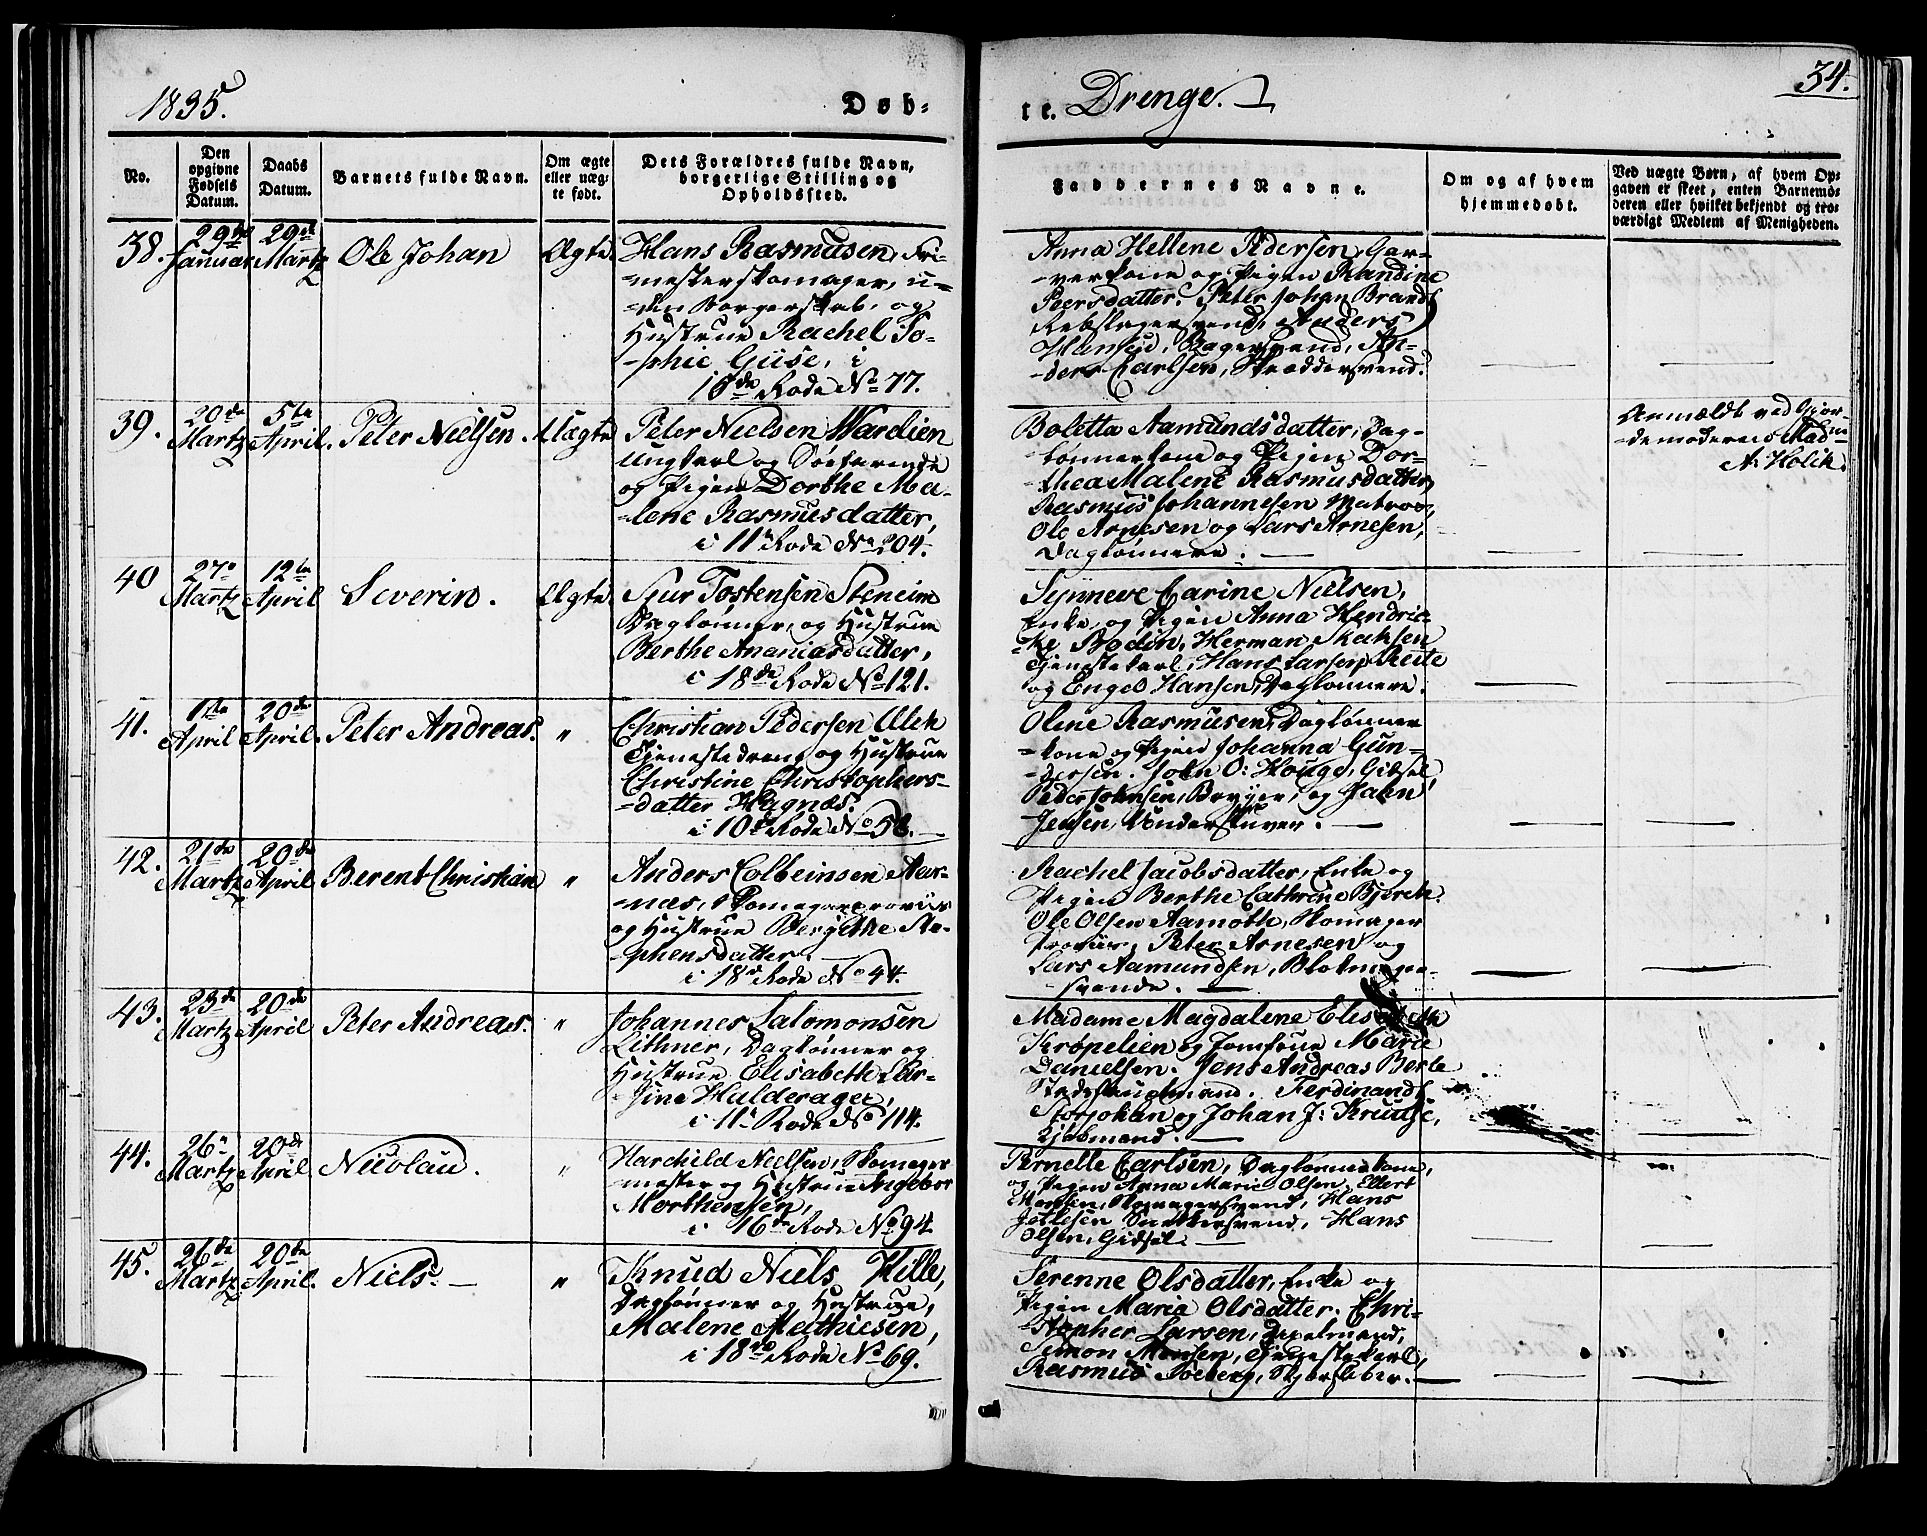 1835.
Døb-
te. Drenge.
34.
No.
Den opgivne Fødsels Datum.
Daabs Datum.
Barnets fulde Navn.
Om ægte eller uægte født.
Dets Forældres fulde Navn, borgerlige Stilling og Opholdssted.
Faddernes Navne.
Om og af hvem hjemmedøbt.
Ved uægte Børn, af hvem Opgaven er skeet, enten Barnemoderen eller hvilket bekjendt og troværdigt Medlem af Menigheden.
38. 29de Januar 29de Martz Ole Johan Ægte.
Hans Rasmusen, Fri-
mesterskomager, u-
den Borgerskab, og
Hustrue Rachel So-
phie Giise, i
16de Rode No 77.
Anna Hellene Pedersen, Gar-
verkone og Pigen Randine
Peersdatter. Peter Johan Brandt
Rebslagersvend, Anders
Hansen, Bagersvend, An-
ders Carlsen, Skræddersvend.
39. 20de Martz 5te April. Peter Nielsen. Uægte
Peter Nielsen Wardien
Ungkarl og Søefarende
og Pigen Dorthe Ma-
lene Rasmusdatter,
i 11te Rode No 204.
Boletta Aamundsdatter, Dag-
lønnerkone og Pigen Dor-
thea Malene Rasmusdatter,
Rasmus Johannesen Matros,
Ole Arnesen og Lars Arnesen,
Daglønnere.
Anmældt ved Gjor-
demoderen Mad
A. Holck.
40 27de Martz 12te April Severin. Ægte.
Siur Tostensen Steneim
Daglønner, og Hustrue
Berthe Ananiasdatter,
i 18de Rode No 121.
Synneve Carine Nielsen,
Enke, og Pigen Anna Hendric-
ke Bodin, Herman
Tjenestekarl, Hans Larsen Reite
og Engel Hansen, Daglønnere.
41. 1te April 20de April. Peter Andreas. "
Christian Pedersen
Tjenestedreng og Hustrue
Christine Christophers-
datter Hagnæs.
i 10de Rode No 58.
Olene Rasmusen, Daglønner
kone og Pigen Johanna Gun-
dersen. John O: Houge, Gidsel
Peder Johnsen, Brygger, og
Jensen,
42. 21de Martz 20de April Berent Christian "
Anders Colbeinsen Aar-
næs, Skomager
og Hustrue Bergithe Ste-
phensdatter.
i 18de Rode No 44.
Rachel Jacobsdatter, Enke og
Pigen Berthe Cathrine Bjerck.
Ole Olsen Aamothe, Skomager
Peter Arnesen og
Lars Aamundsen,
svende.
43. 23de Martz 20de April Peter Andreas. "
Johannes Salomonsen
Lithner, Daglønner og
Hustrue Elisabeth Lar-
sine Halderager,
i 11te Rode No 114.
Madame Magdalene Elisabeth
Krøpelien og Jomfrue Marie
Danielsen. Jens Andreas Berle
Ferdinandt
Storjohan og Johan J: Kruuse,
Kjøbmænd.
44. 26de Martz 20de April Nicolau. "
Harchild Nielsen, Skomager
mester og Hustrue Ingebor
Morthensen,
i 16de Rode No 94
Pernelle Carlsen, Daglønnerkone,
og Pigen Anna Marie Olsen, Ellert
Monsen, Skomagersvend, Hans
Snedkersvend, Hans
Olsen, Gidsel.
45. 26de Martz 20de April. Niels. "
Knud Niels Hille,
Daglønner og Hustrue,
Malene Mathiesen,
i 18de Rode No 69.
Serenne Olsdatter, Enke og
Pigen Maria Olsdatter. Chri-
stopher Larsen,
Simon Monsen, Tjenestekarl,
Rasmus Soeberg,